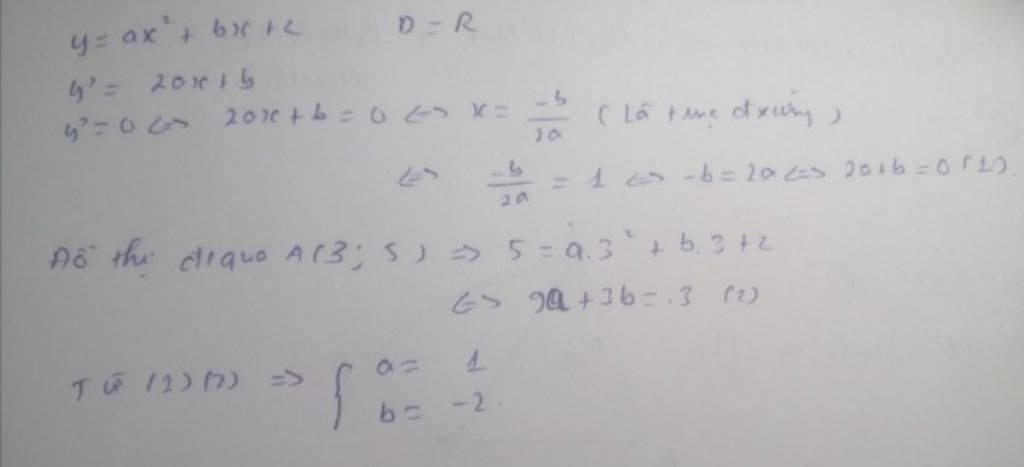 y = ax² + bx + 2 D = R
y' = 2ax + b
y' = 0 <=> 2ax + b = 0 <=> x = -b/2a (Là trục đxứng)
<=> -b/2a = 1 <=> -b = 2a <=> 2a + b = 0 (1).
Đồ thị đi qua A(3; 5) => 5 = a.3² + b.3 + 2
<=> 9a + 3b = 3 (2)
Từ (1)(2) => { a = 1
b = -2.